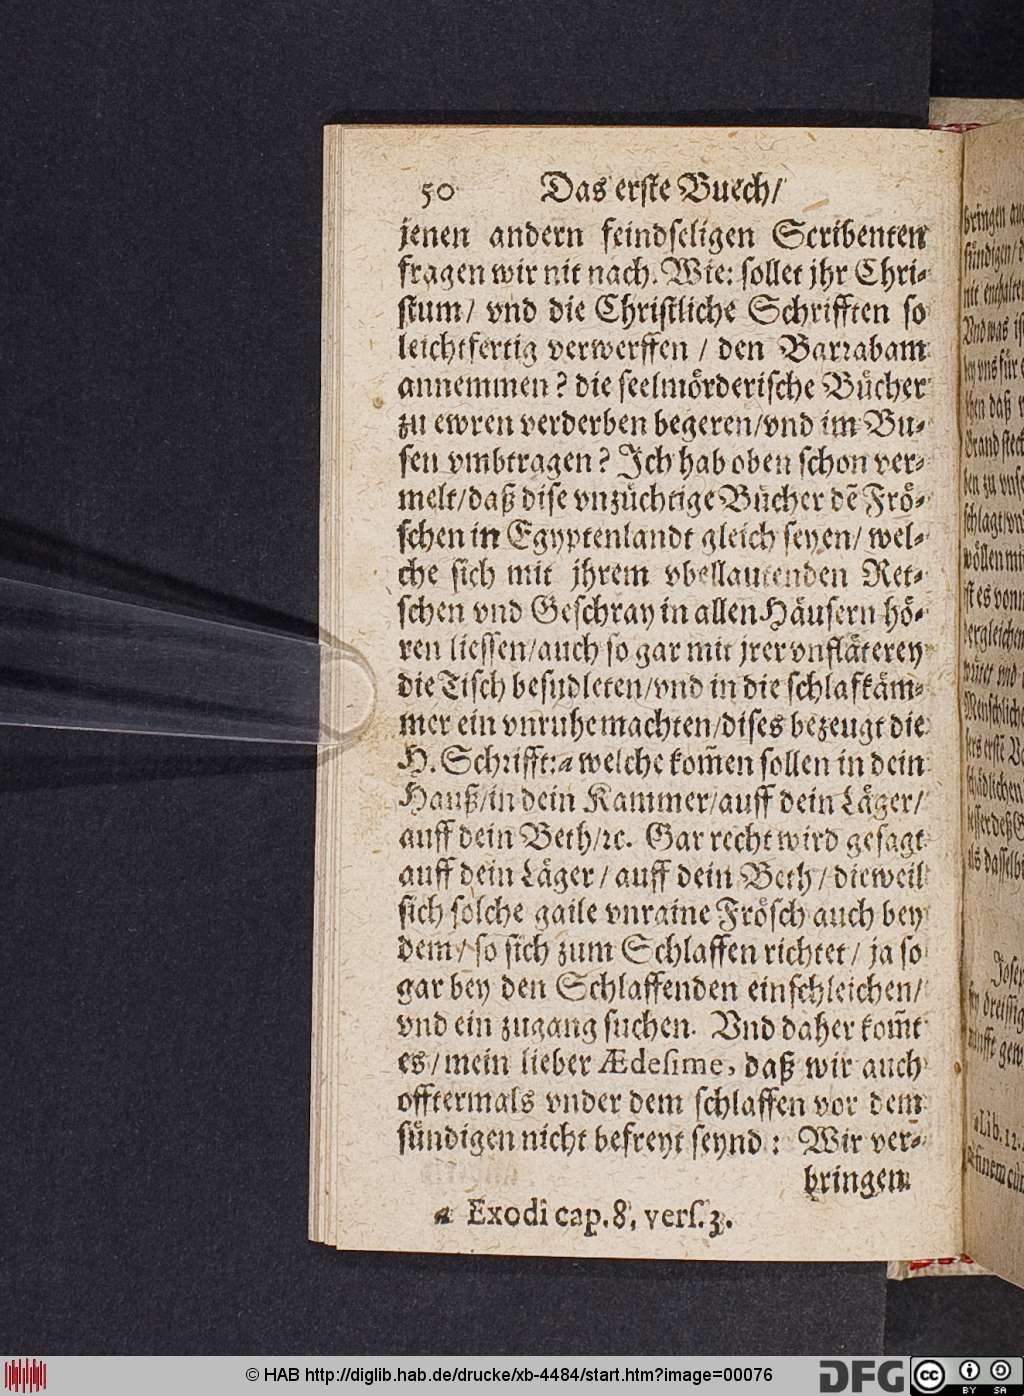 50 Das erste Buech/
jenen andern feindseligen Scribenten
fragen wir nit nach. Wie: sollet jhr Chri-
stum/ vnd die Christliche Schrifften so
leichtfertig verwerffen / den Barrabam
annemmen? die seelmörderische Bücher
zu ewren verderben begeren/vnd im Bu-
sen vmbtragen? Ich hab oben schon ver-
melt/daß dise vnzüchtige Bücher dē Frö-
schen in Egyptenlandt gleich seyen/ wel-
che sich mit jhrem vbellautenden Ret-
schen vnd Geschray in allen Häusern hö-
ren liessen/auch so gar mit jrer vnfläterey
die Tisch besudleten/vnd in die schlafkäm-
mer ein vnruhe machten/dises bezeugt die
H. Schrifft:a welche kom̄en sollen in dein
Hauß/in dein Kammer/auff dein Läger/
auff dein Beth/ꝛc. Gar recht wird gesagt
auff dein Läger / auff dein Beth / dieweil
sich solche gaile vnraine Frösch auch bey
dem/ so sich zum Schlaffen richtet/ ja so
gar bey den Schlaffenden einschleichen/
vnd ein zugang suchen. Vnd daher kom̄t
es/mein lieber Ædesime, daß wir auch
offtermals vnder dem schlaffen vor dem
sündigen nicht befreyt seynd: Wir ver-
bringen
a Exodi cap. 8. vers. 3.
© HAB http://diglib.hab.de/drucke/xb-4484/start.htm?image=00076
DFG
cc
BY SA